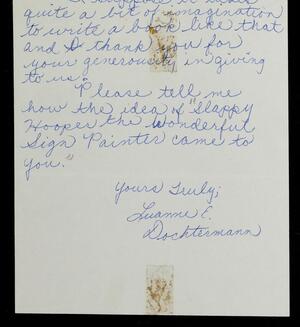 I suppose it takes
quite a bit of immagination
to write a book like that
and I thank you for
your generoucity in giving
to us.
"Please tell me
how the idea of "Slappy
Hooper the Wonderful
Sign Painter came to
you."
Yours Truly;
Luanne E.
Docktermann